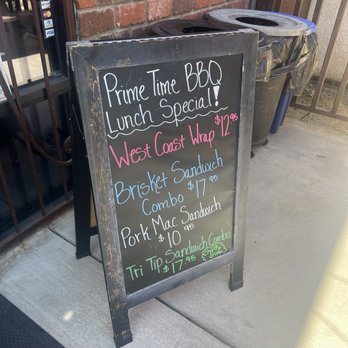 Prime Time BBQ
Lunch Special!
West Coast Wrap $12.95
Brisket Sandwich
Combo $17.95
Pork Mac Sandwich
$10.95
Tri Tip Sandwich Combo
$17.95